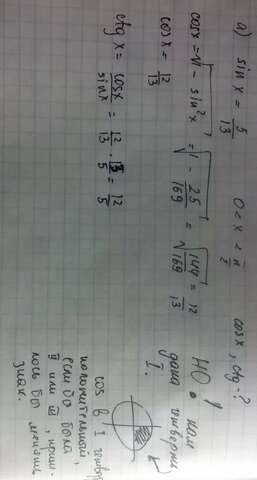 а) sin x = 5/13    0 < x < π/2    cos x, ctg - ?
cos x = √1 - sin²x = √1 - 25/169 = √144/169 = 12/13
cos x = 12/13
ctg x = cos x/sin x = 12/13 · 13/5 = 12/5
НО! нам
дана четверть
I.
cos
в I четверти
положительный,
если бы была
II или III, приш-
лось бы менять
знак.